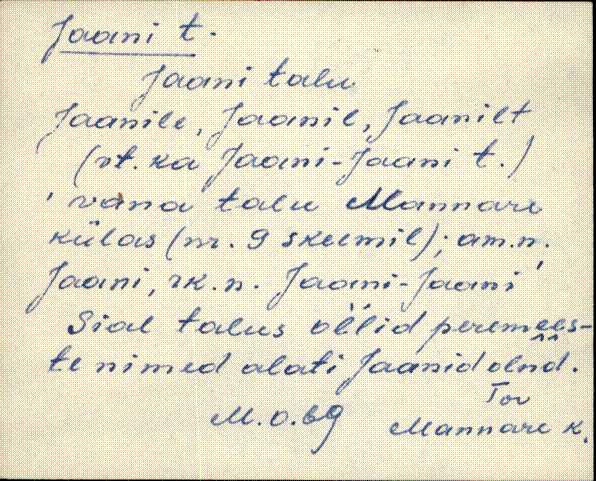 Jaani t.
Jaani talu
Jaanile, Jaanil, Jaanilt
(vt. ka Jaani-Jaani t.)
' vana talu Mannare
külas (nr. 9 skeemil); am.n.
Jaani, rk.n. Jaani-Jaani'
Sial talus ollid peremees-
te nimed alati Jaanid olnd.
Tov
M.O.69 Mannare k.